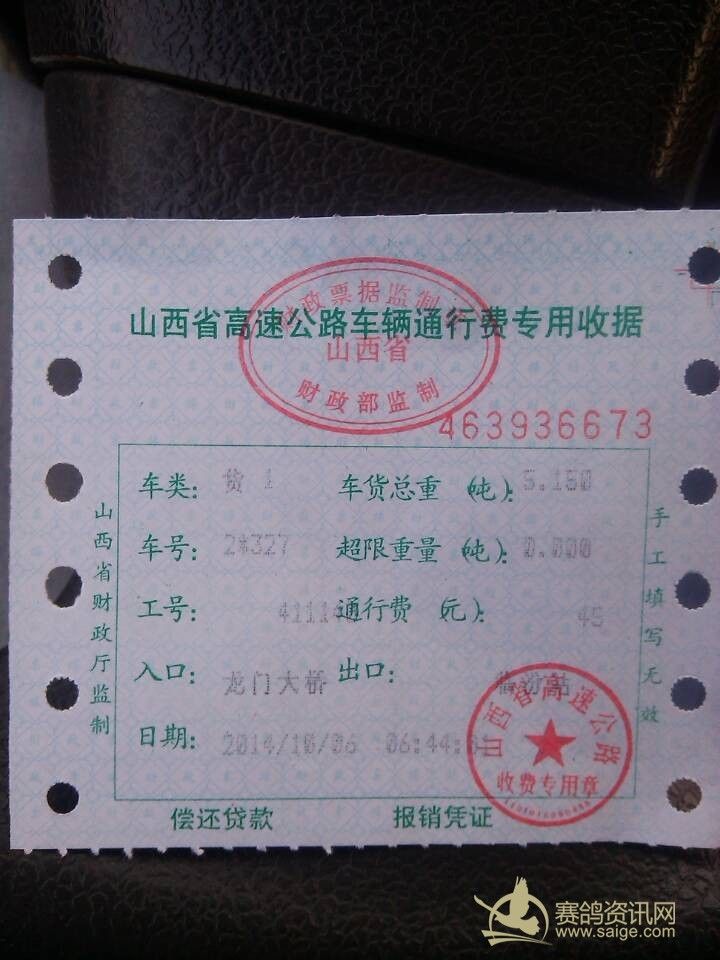 财政票据监制
山西省高速公路车辆通行费专用收据
山西省
财政部监制
463936673
车类: 货 1 车货总重 (吨): 5.150
车号: 2*327 超限重量 (吨): 0.000
工号: 4111 通行费 (元): 45
入口: 龙门大桥 出口:
日期: 2014/10/06 06:44:
山西省财政厅监制
手工填写无效
山西省高速公路
收费专用章
偿还贷款 报销凭证
赛鸽资讯网
www.saige.com